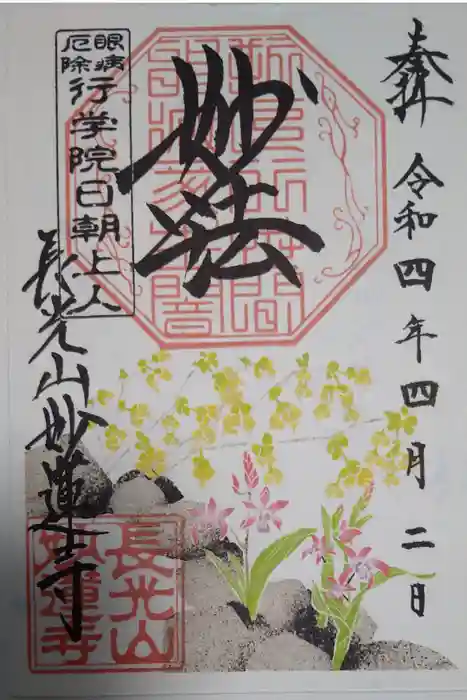 奉拝
令和四年四月二日
妙法
眼病
厄除
行学院日朝上人
長光山妙蓮寺
長光山
妙蓮寺